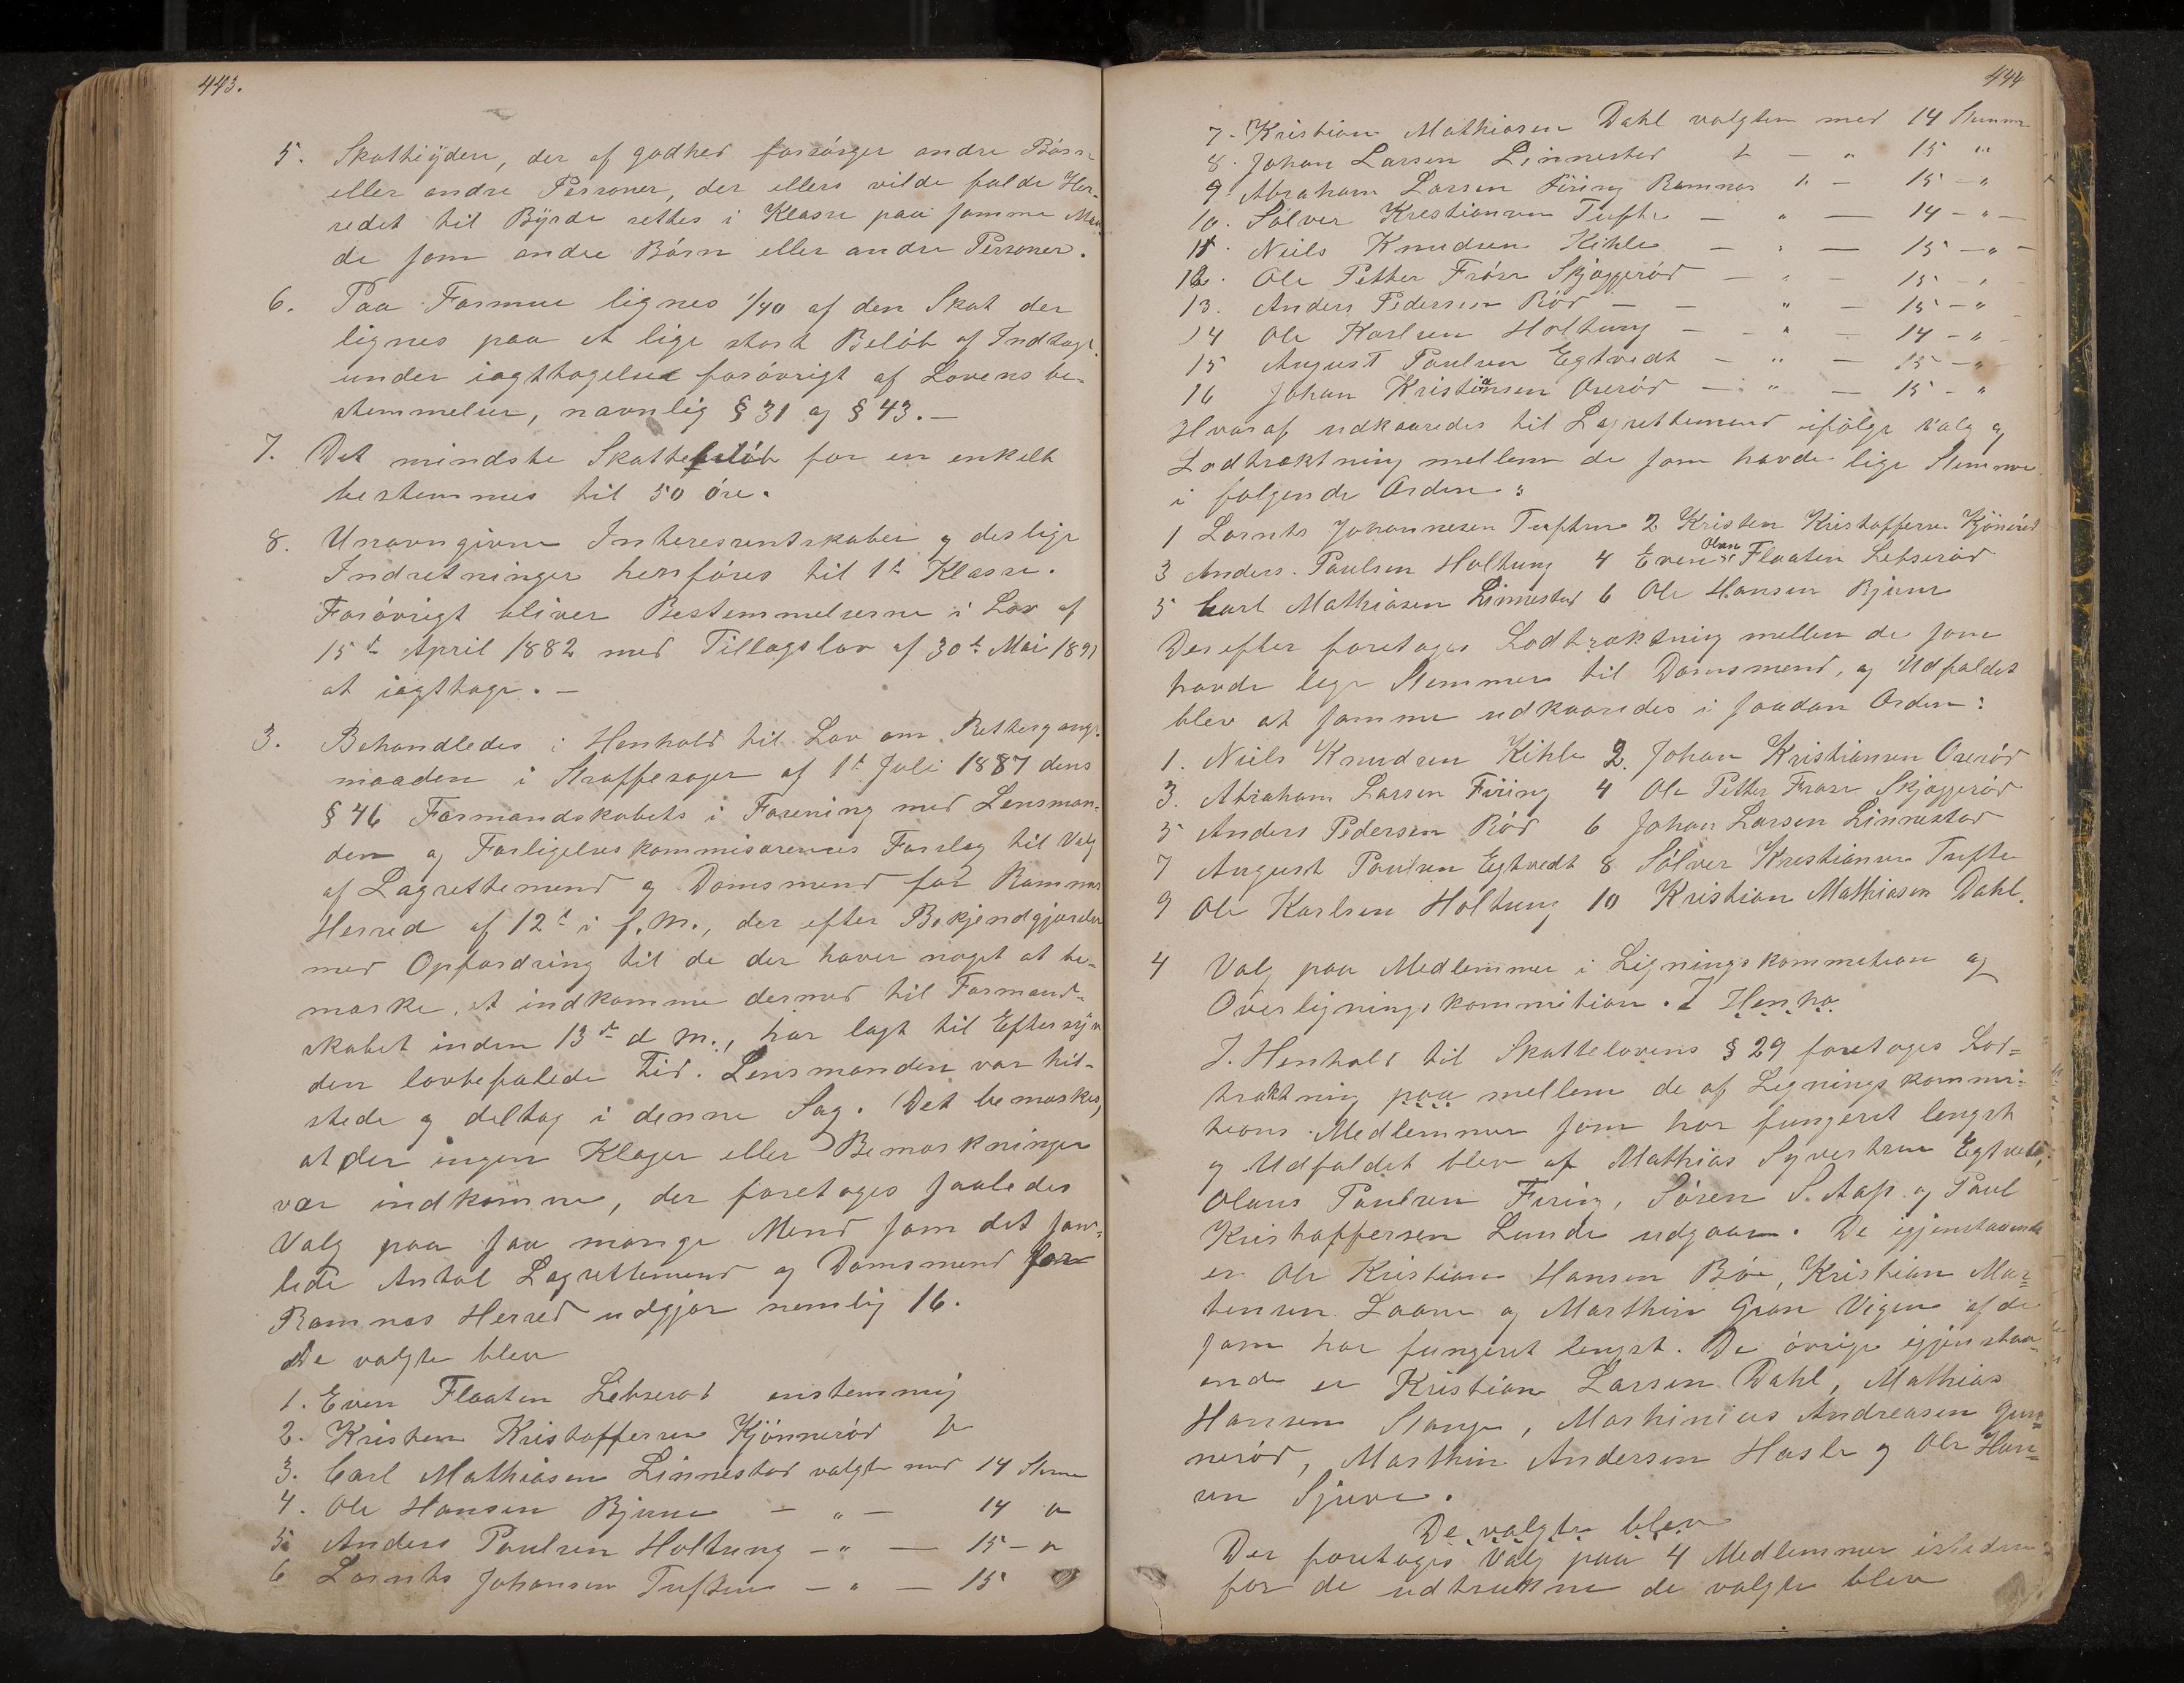 443.
5. Skatteÿdere, der af godhed forsørger andre Børn
eller andre Personer, der ellers vilde falde Her-
redet til Byrde settes i Klasse paa samme Maa
de som andre Børn eller andre Personer.
6. Paa Formue lignes 1/40 af den Skat der
lignes paa et lige stort Beløb af Indtægt
under iagttagelse forøvrigt af Lovens be-
stemmelser, navnlig § 31 og § 43. —
7. Det mindste Skattebeløb for en enkelt
bestemmes til 50 øre.
8. Unavngivne Interesentskaber og deslige
Indretninger henføres til 1te Klasse.
Forøvrigt bliver Bestemmelserne i Lov af
15de April 1882 med Tillægslov af 30te Mai 1891
at iagttage. —
3. Behandledes i Henhold til Lov om Rettergangs
maaden i Straffesager af 1te Juli 1887 dens
§ 46 Formandskabets i Forening med Lensman-
den og Forligelseskommisærernes Forslag til Valg
af Lagrettemend og Domsmend for Ramnes
Herred af 12te i f. M., der efter Bekjendgjørelse
med Opfordring til de der haver noget at be-
mærke, at indkomme dermed til Formand-
skabet inden 13de d M., har lagt til Eftersyn
den lovbefalede tid. Lensmanden var til-
stede og deltog i denne Sag. Det bemærkes,
at der ingen Klager eller Bemærkninger
var indkomne, der foretoges saaledes
Valg paa saa mange Mend som det saa-
lede Antal Lagrettemend og Domsmend for
Ramnes Herred udgjør nemlig 16.
De valgte blev
1. Even Flaaten Lebserød enstemmig
2. Kristen Kristoffersen Kjønnerød "
3. Carl Mathiasen Linnestad valgt med 14 Stemm
4. Ole Hansen Bjune — " — 14 "
5 Anders Paulsen Holtung — " — 15 — "
6 Lornts Johansen Tuften — " — 15
444
7. Kristian Mathiasen Dahl valgten med 14 Stemm
8. Johan Larsen Linnestad " — " 15 "
9 Abraham Larsen Firing Ramnes " — 15 — "
10. Sølver Kristiansen Tufte — " — 14 — " —
11. Niels Knudsen Kihle — " — 15 — " —
12. Ole Petter Frøse Skjæggerød — " 15 — "
13. Anders Pedersen Rød — — " — 15 — "
14 Ole Karlsen Holtung — — " — 14 — "
15 August Paulsen Egtvedt — " — 15 — "
16 Johan Kristiansen Orerød — " — 15 — "
Hvoraf udkaaredes til Lagrettemend ifølge Valg og
Lodtræktning mellem de som havde lige Stemme
i følgende Orden:
1 Lornts Johannesen Tuften 2 Kristen Kristoffersen Kjønnerød
3 Anders Paulsen Holtung 4 Even Olsen Flaaten Lebserød
5 Carl Mathiasen Linnestad 6 Ole Hansen Bjune
Derefter foretages Lodtræktning mellem de som
havde lige Stemmer til Domsmend, og Udfaldet
blev at samme udkaaredes i saadan Orden:
1. Niels Knudsen Kihle 2. Johan Kristiansen Orerød
3. Abraham Larsen Firing 4 Ole Petter Frøse Skjæggerød
5 Anders Pedersen Rød 6 Johan Larsen Linnestad
7 August Paulsen Egtvedt 8 Sølver Kristiansen Tufte
9 Ole Karlsen Holtung 10 Kristian Mathiasen Dahl.
4 Valg paa Medlemmer i Ligningskommetion og
Overligningskommition. I Henho
I. Henhold til Skattelovens § 29 foretoges Lod=
træktning paa mellem de af Ligningskommi=
tions Medlemmer som har fungeret lengst
og Udfaldet blev af Mathias Syvertsen Egtvedt,
Olaus Paulsen Firing, Søren S. Aap og Paul
Kristoffersen Lunde udgaar. De igjenstaaende
er Ole Kristian Hansen Bøe, Kristian Mar=
tensen Laane og Marthin Gran Vigen af de
som har fungeret lengst. De øvrige igjenstaa-
ende er Kristian Larsen Dahl, Mathias
Hansen Stange, Marthinius Andreasen Gun=
nerød, Marthin Andersen Hasle og Ole Han=
sen Sjuve.
De valgte blev
Der foretoges Valg paa 4 Medlemmer istedenn
for de udtrukne de valgte blev